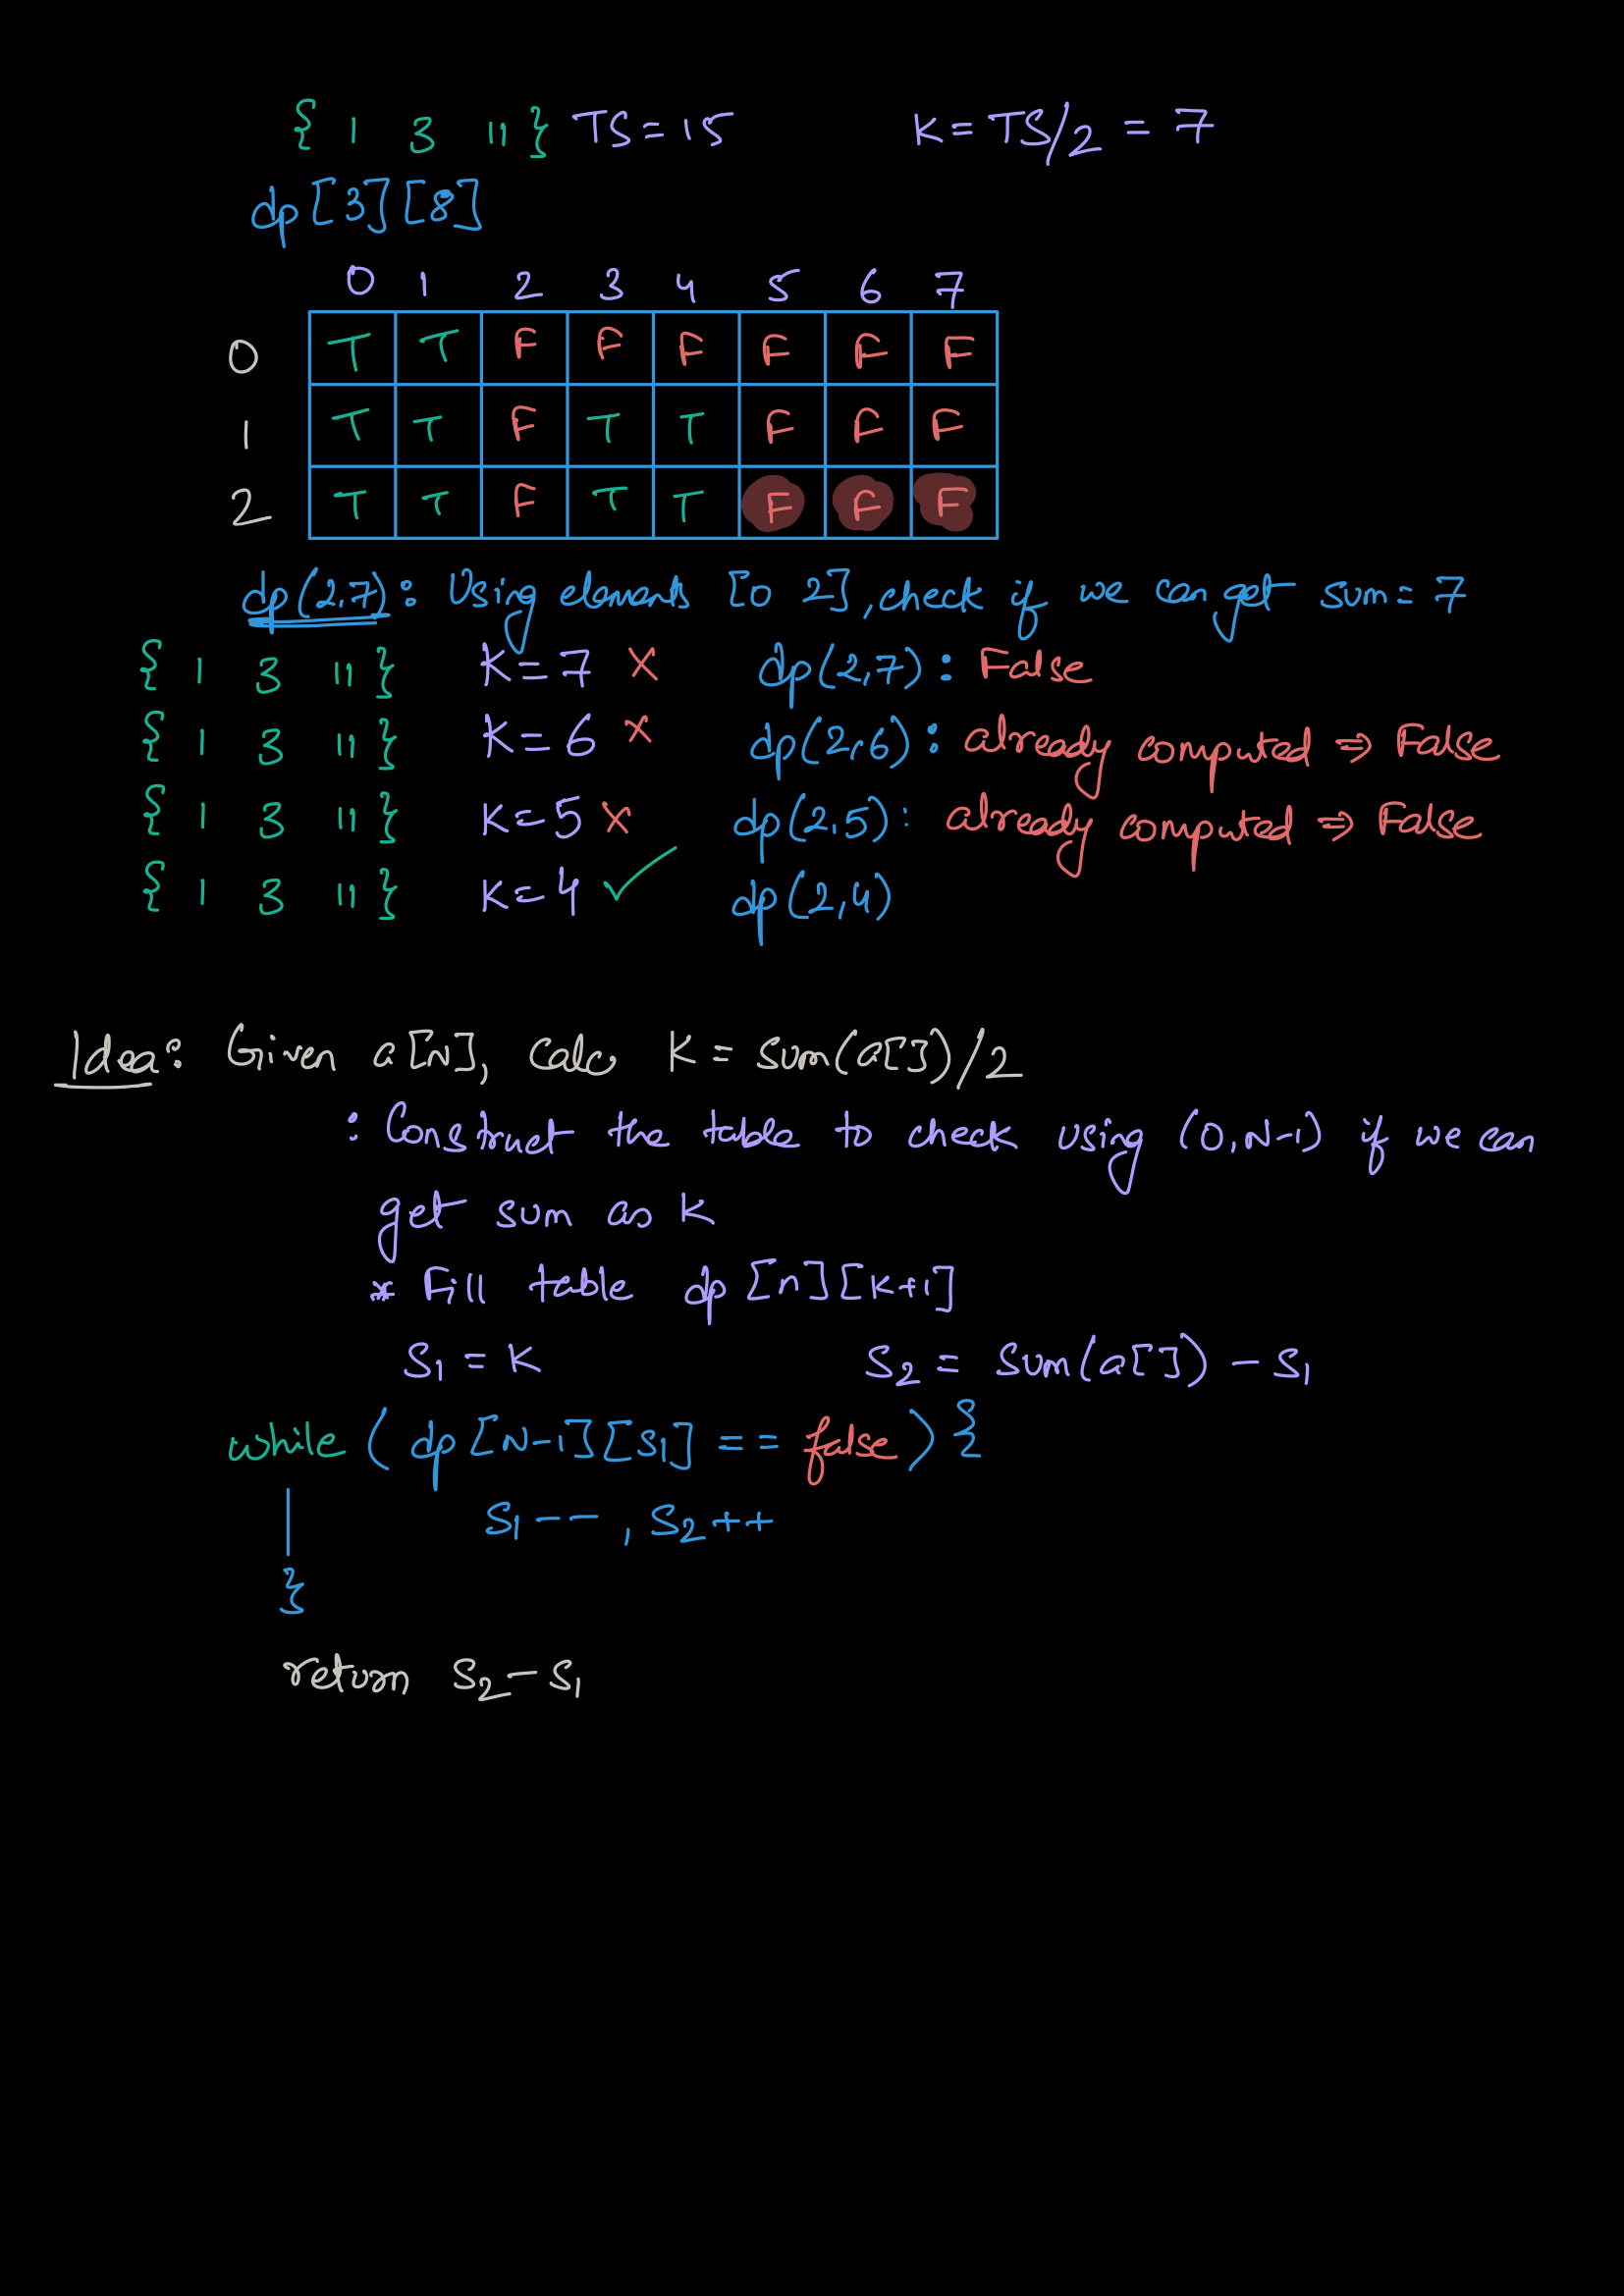 { 1 3 11 } TS = 15 K = TS/2 = 7
dp[3][8]
0 1 2 3 4 5 6 7
0 T T F F F F F F
1 T T F T T F F F
2 T T F T T F F F
dp(2,7) : Using elements [0 2], check if we can get sum = 7
{ 1 3 11 } K = 7 X dp(2,7) : False
{ 1 3 11 } K = 6 X dp(2,6) : already computed ⇒ False
{ 1 3 11 } K = 5 X dp(2,5) : already computed ⇒ False
{ 1 3 11 } K = 4 ✓ dp(2,4)
Idea : Given a[N], calc K = sum(a[])/2
: Construct the table to check using (0,N-1) if we can
get sum as K
* Fill table dp[n][K+1]
S1 = K S2 = sum(a[]) - S1
while ( dp[N-1][S1] == false) {
S1 -- , S2 ++
}
return S2 - S1